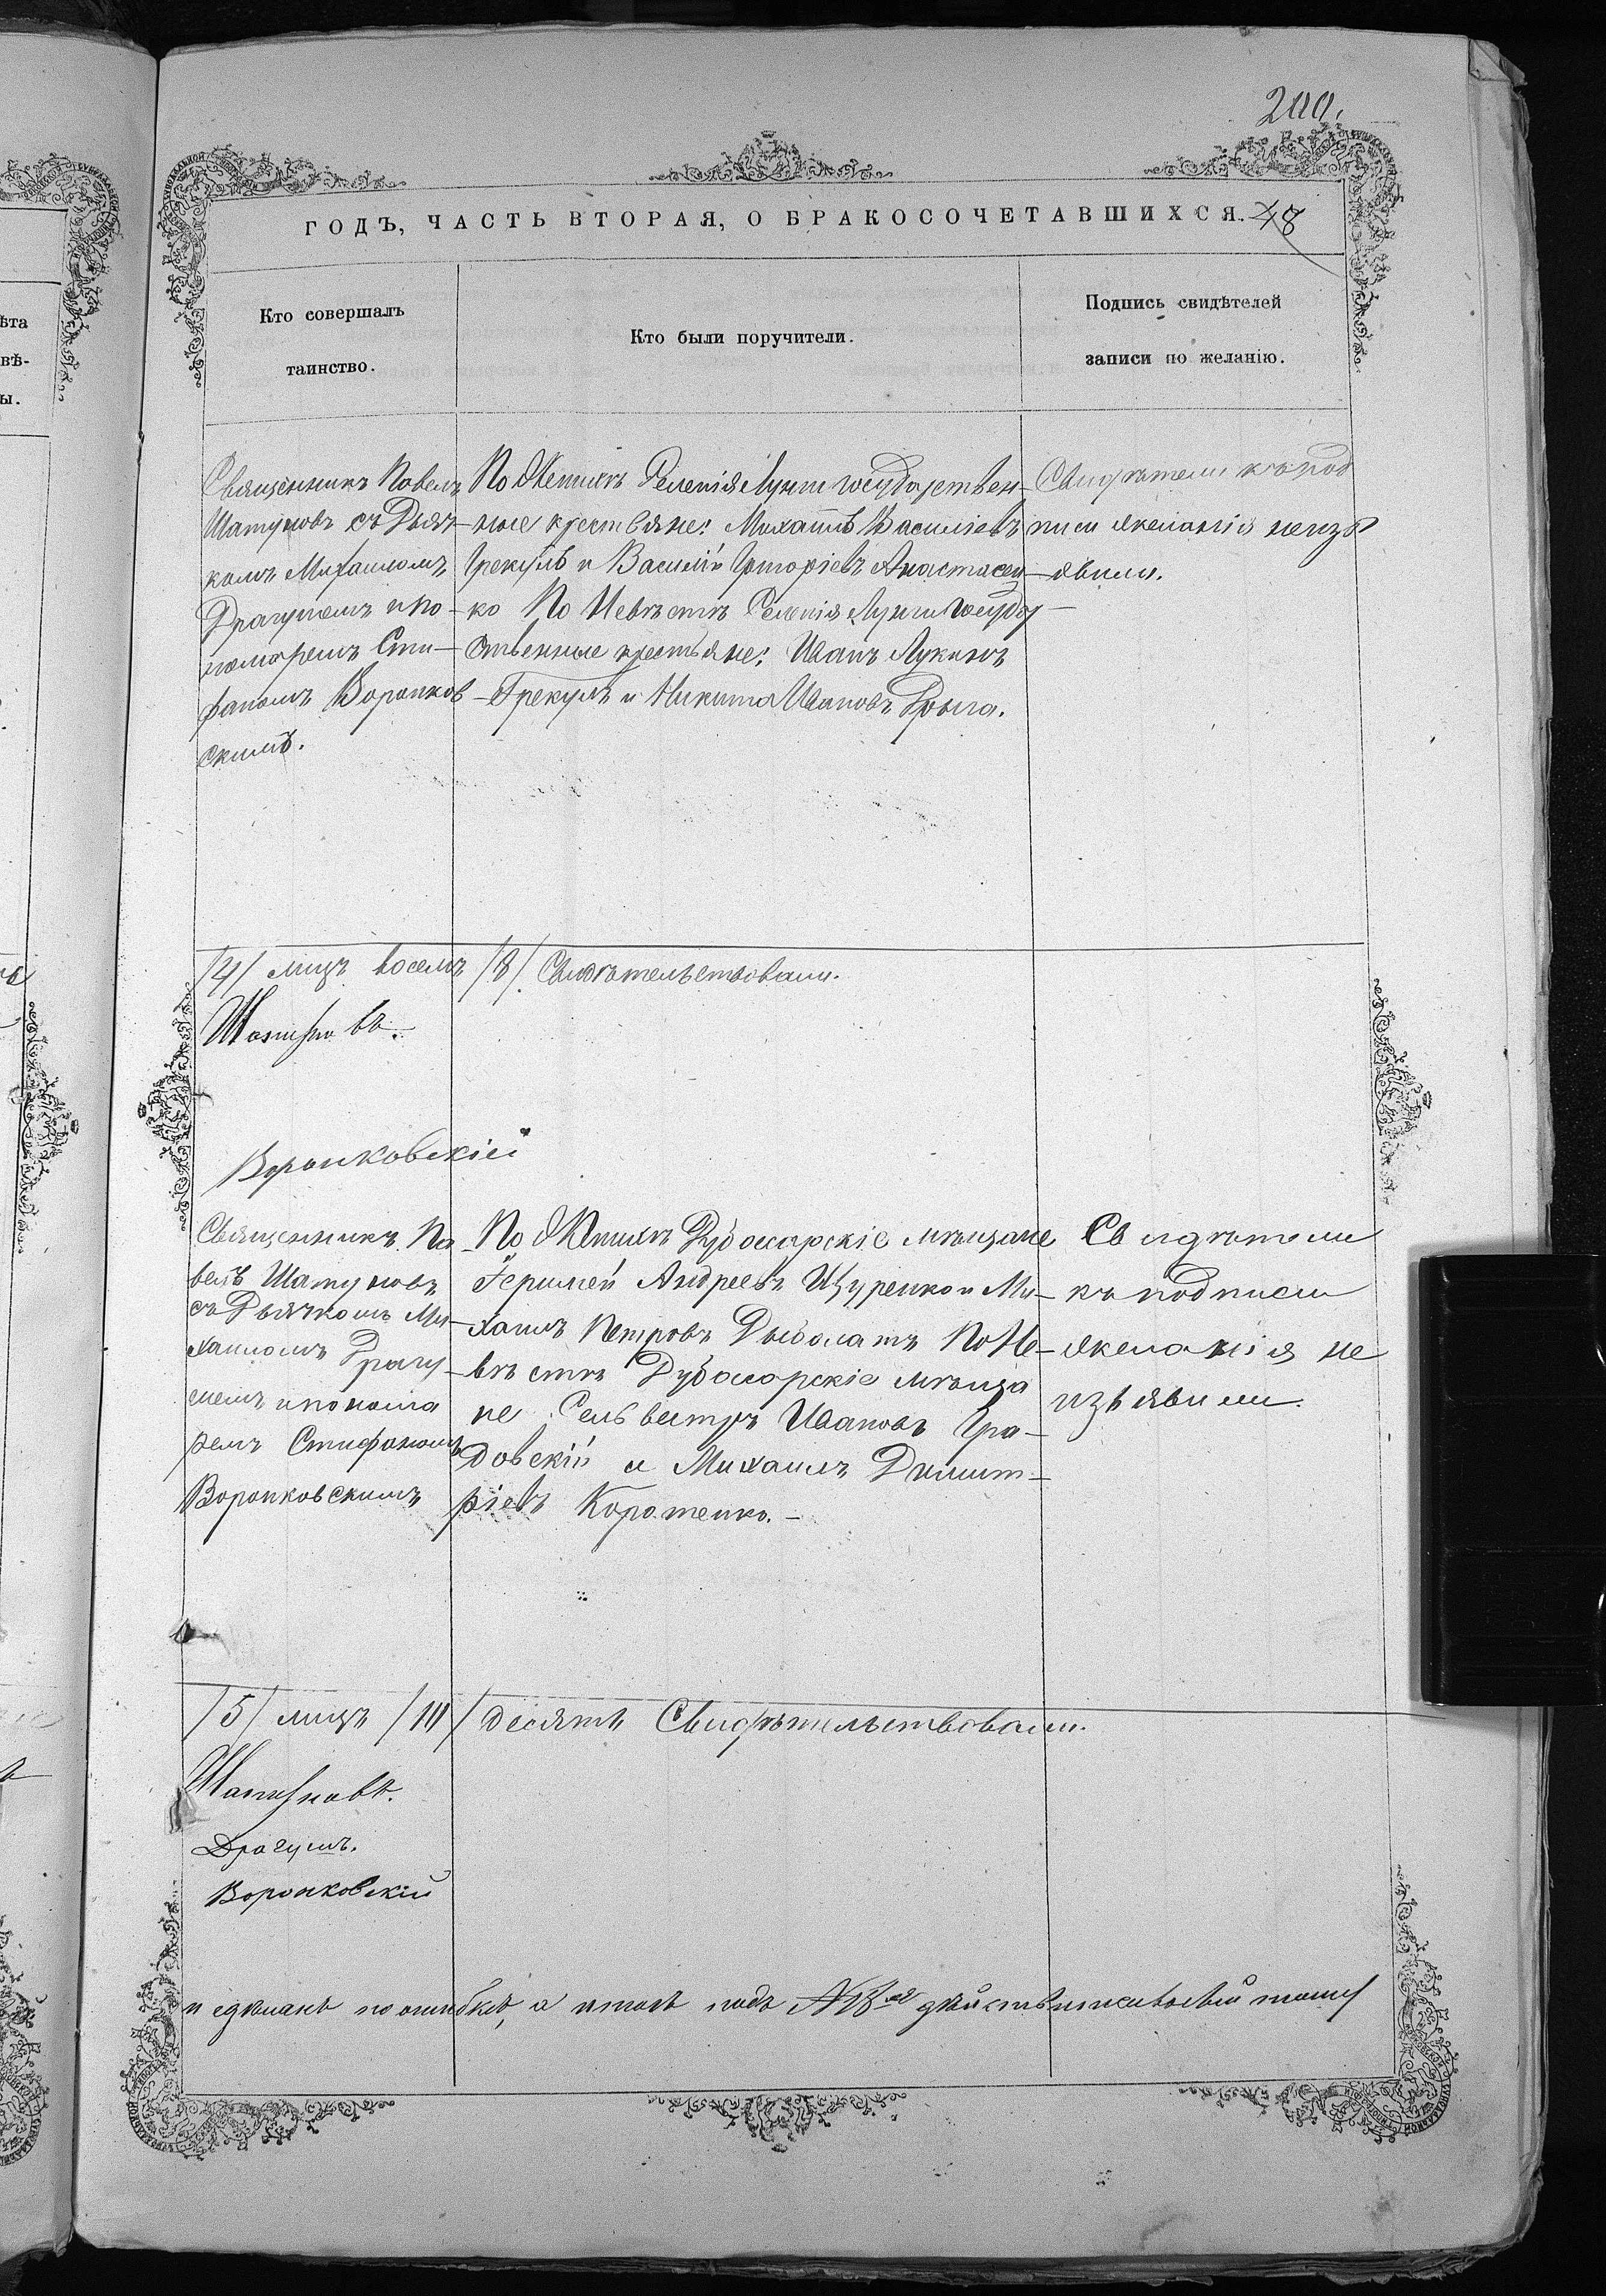 200.
ГОДЪ, ЧАСТЬ ВТОРАЯ, О БРАКОСОЧЕТАВШИХСЯ. 48
Кто совершалъ
таинство.
Кто были поручители.
Подпись свидѣтелей
записи по желанію.
Священникъ Павелъ
Шатуновъ съ Дьяч-
комъ Михаиломъ
Драгулемъ и по-
номаремъ Сти-
фаномъ Воронков
скимъ.
По Женихѣ Селенія Лунги государствен-
ные крестьяне: Михаилъ Василіевъ
Грекулъ и Василій Григоріевъ Анастасен-
ко По Невѣстѣ Селенія Лунги Госуда-
ственные крестьяне: Иванъ Лукинъ
Грекулъ и Никита Ивановъ
Свидѣтели къ под
писи желанія неизъ
явили.
/4/ лицъ восемъ /8/. Свидѣтельствовали.
Шатуновъ.
Воронковскій
Священникъ Па
велъ Шатуновъ
съ Дьячкомъ Ми-
хаиломъ Драгу-
лемъ и понома
ремъ Стифаномъ
Воронковскимъ
По Женихѣ Дубоссарскіе мѣщане
Андреевъ Щуренко и Ми-
хаилъ Петровъ По Не-
вѣстѣ Дубоссарскіе мѣща
не Сельвестръ Ивановъ Гра-
довскій и Михаилъ Димит-
ріевъ Коротенко. -
Свидѣтели
къ подписи
желанія не
изъявили.
/5/ лицъ /10/ десять Свидѣтельствовали.
Шатуновъ.
Драгулъ.
Воронковскій
и сдѣланъ по ошибкѣ, а итогъ подъ
ѣта
вѣ-
ы.